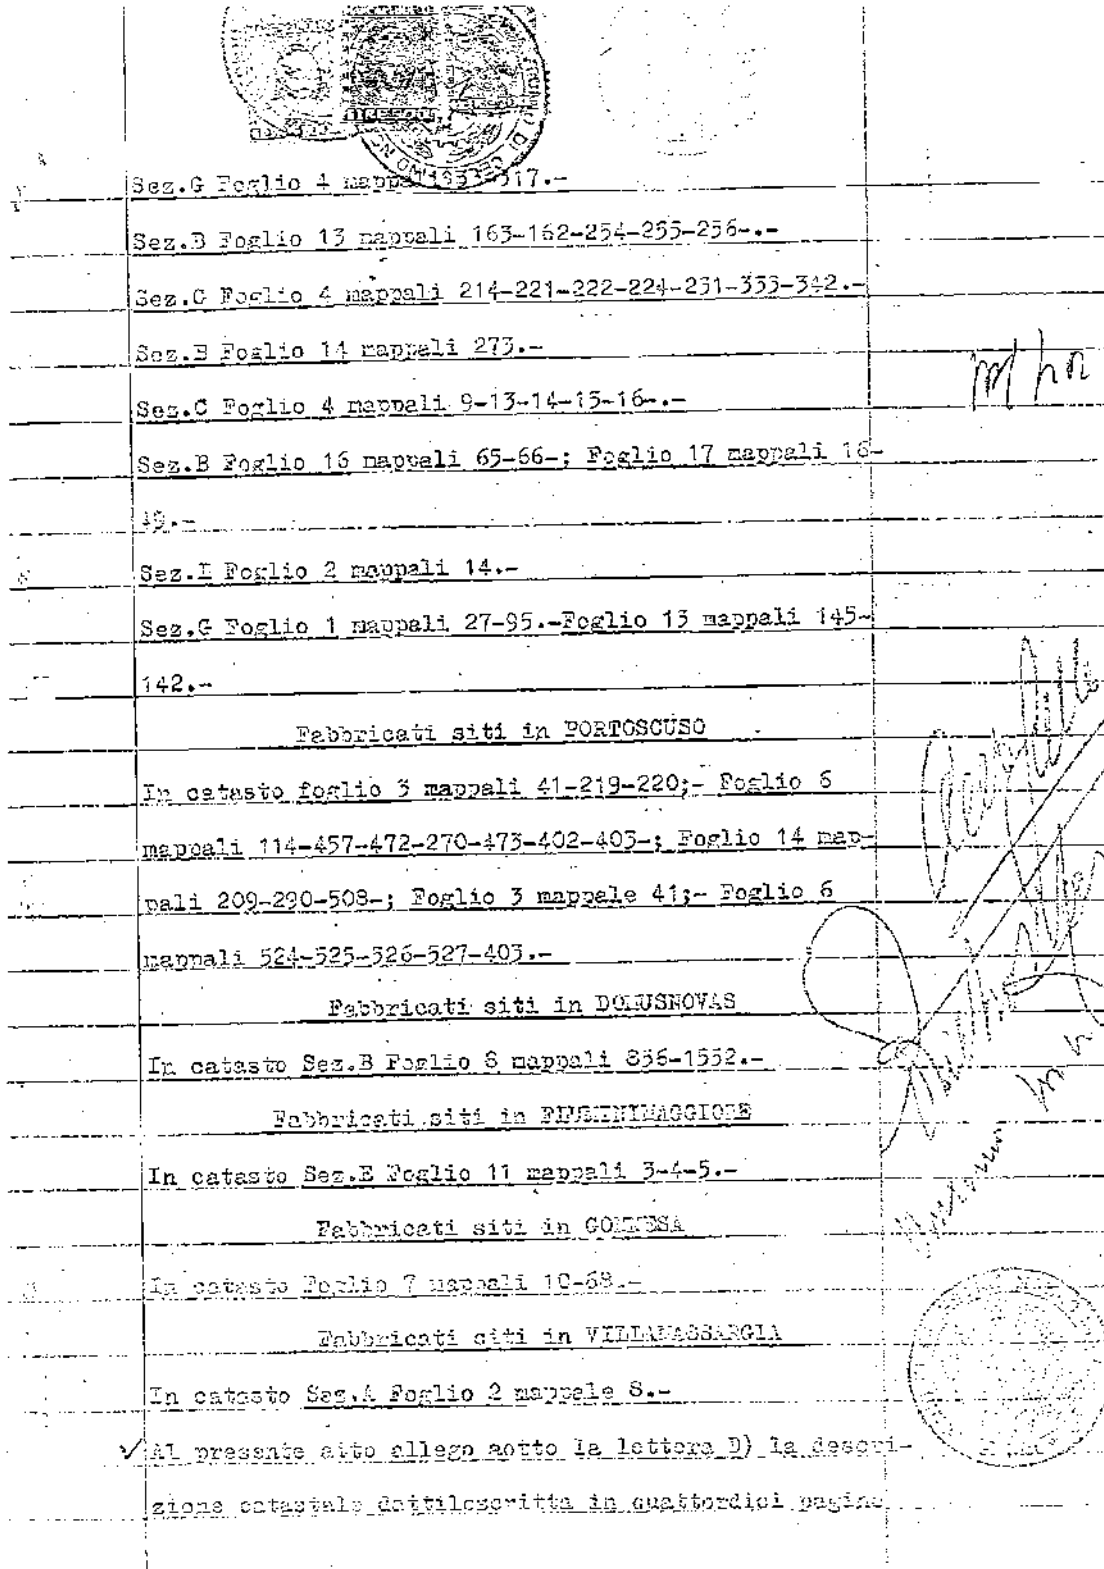 Sez.G Foglio 4 317.-
Sez.B Foglio 13 mappali 163-162-254-255-256-.-
Sez.C Foglio 4 mappali 214-221-222-224-231-333-342.-
Sez.B Foglio 14 mappali 273.-
Sez.C Foglio 4 mappali 9-13-14-15-16-.-
Sez.B Foglio 16 mappali 65-66-; Foglio 17 mappali 18-
19.-
Foglio 2 mappali 14.-
Sez.G Foglio 1 mappali 27-95.-Foglio 13 mappali 145-
142.-
Fabbricati siti in PORTOSCUSO
In catasto foglio 3 mappali 41-219-220;- Foglio 6
mappali 114-457-472-270-473-402-403-; Foglio 14 map-
pali 209-290-508-; Foglio 3 mappale 41;- Foglio 6
mappali 524-525-526-527-403.-
Fabbricati siti in DOMUSNOVAS
In catasto Sez.B Foglio 8 mappali 836-1552.-
Fabbricati siti in FLUMINIMAGGIORE
In catasto Sez.E Foglio 11 mappali 3-4-5.-
Fabbricati siti in GONNESA
In catasto Foglio 7 mappali 10-68.-
Fabbricati siti in VILLAMASSARGIA
In catasto Sez.A Foglio 2 mappale 8.-
Al presente atto allego sotto la lettera D) la descri-
zione catastale dattiloscritta in quattordici pagine